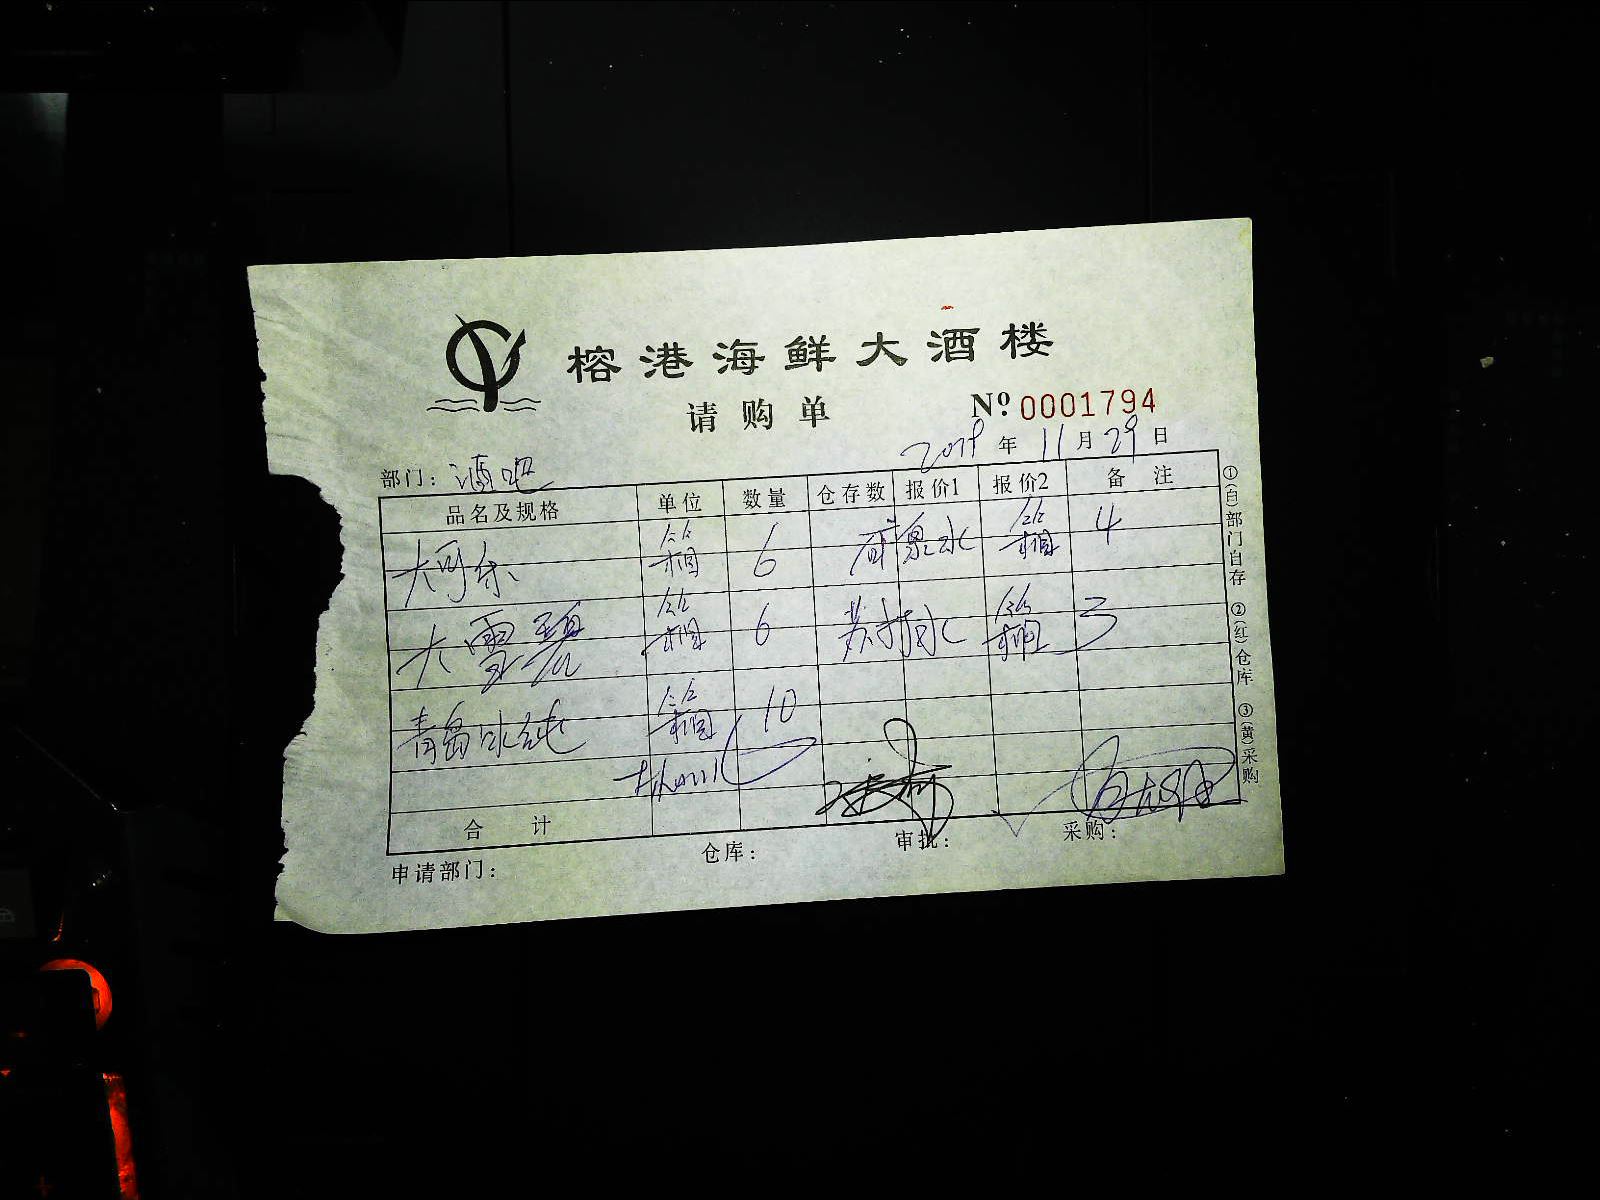 榕港海鲜大酒楼
请购单
Nº 0001794
2019年11月29日
部门：酒吧
品名及规格 单位 数量 仓存数 报价1 报价2 备注
大可乐 箱 6 泉水 箱 4
大雪碧 箱 6 苏打水 箱 3
青岛冰纯 箱 10
合计
申请部门： 仓库： 审批： 采购：
①(白)部门自存 ②(红)仓库 ③(黄)采购